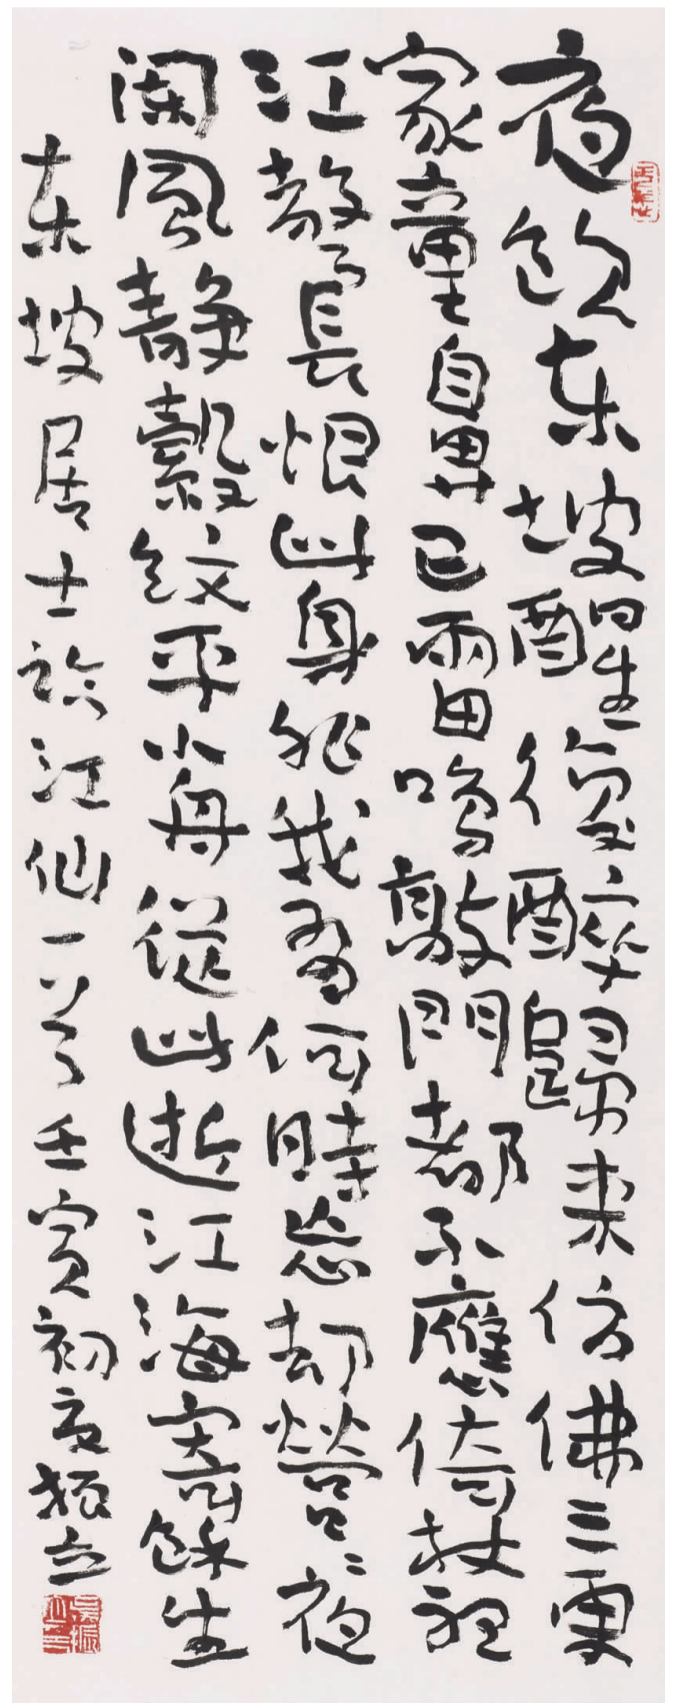 夜飲东坡醒復醉歸来仿佛三更
家童鼻已雷鳴敲門都不應倚杖聽
江聲長恨此身非我有何時忘却營〻夜
闌風靜縠紋平小舟從此逝江海寄餘生
东坡居士临江仙一首壬寅初夏振立